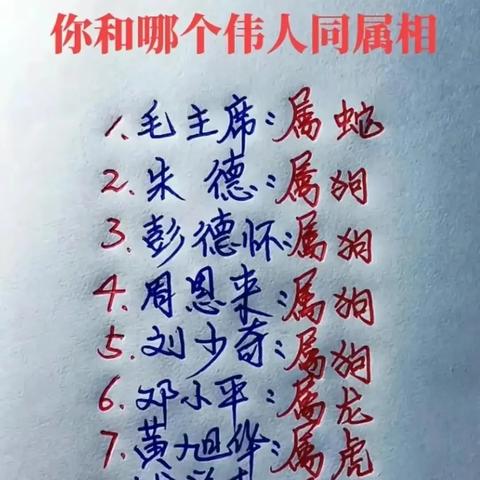 你和哪个伟人同属相
1.毛主席:属蛇
2.朱德:属狗
3.彭德怀:属狗
4.周恩来:属狗
5.刘少奇:属狗
6.邓小平:属龙
7.黄旭华:属虎